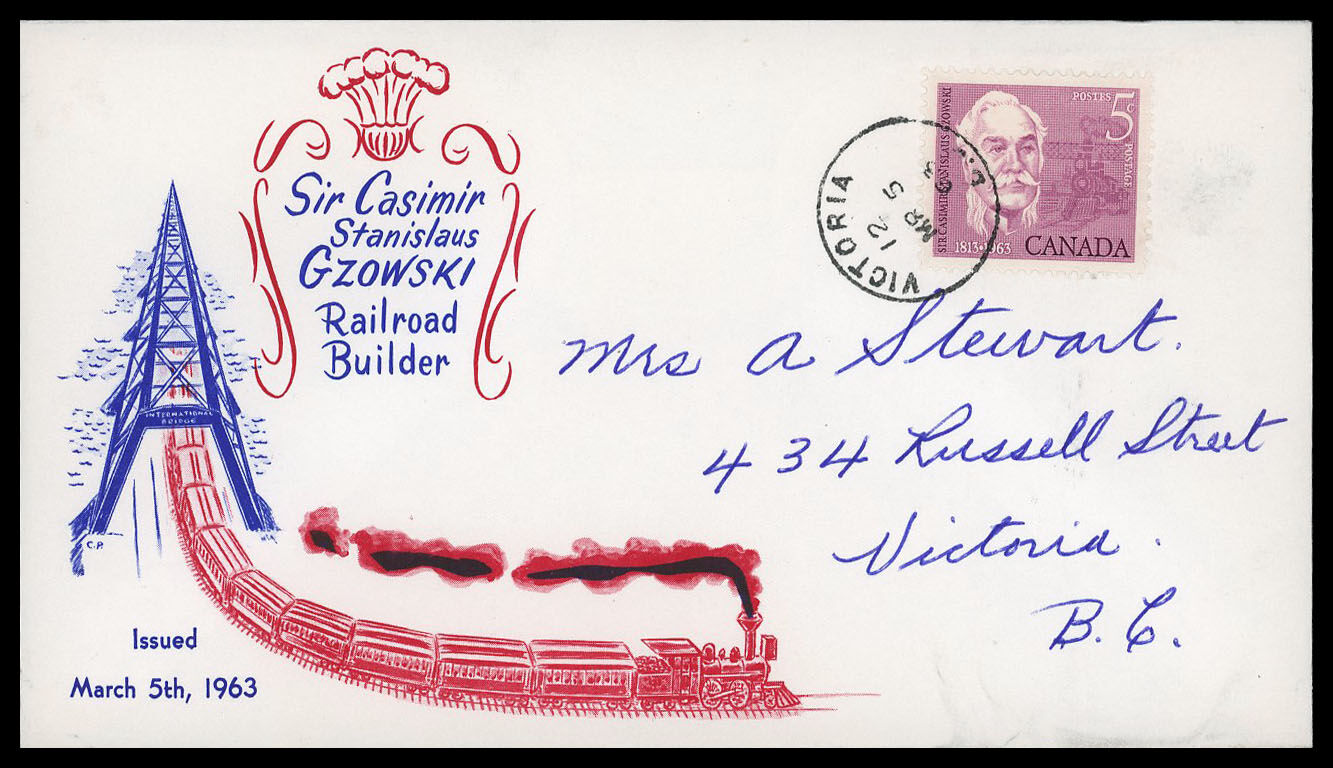 Sir Casimir
Stanislaus
GZOWSKI
Railroad
Builder
INTERNATIONAL
BRIDGE
C.P.
Issued
March 5th, 1963
SIR CASIMIR STANISLAUS GZOWSKI
POSTES 5c
POSTAGE
1813•1963 CANADA
VICTORIA
12
MR 5
63
Mrs A Stewart.
434 Russell Street
Victoria.
B.C.